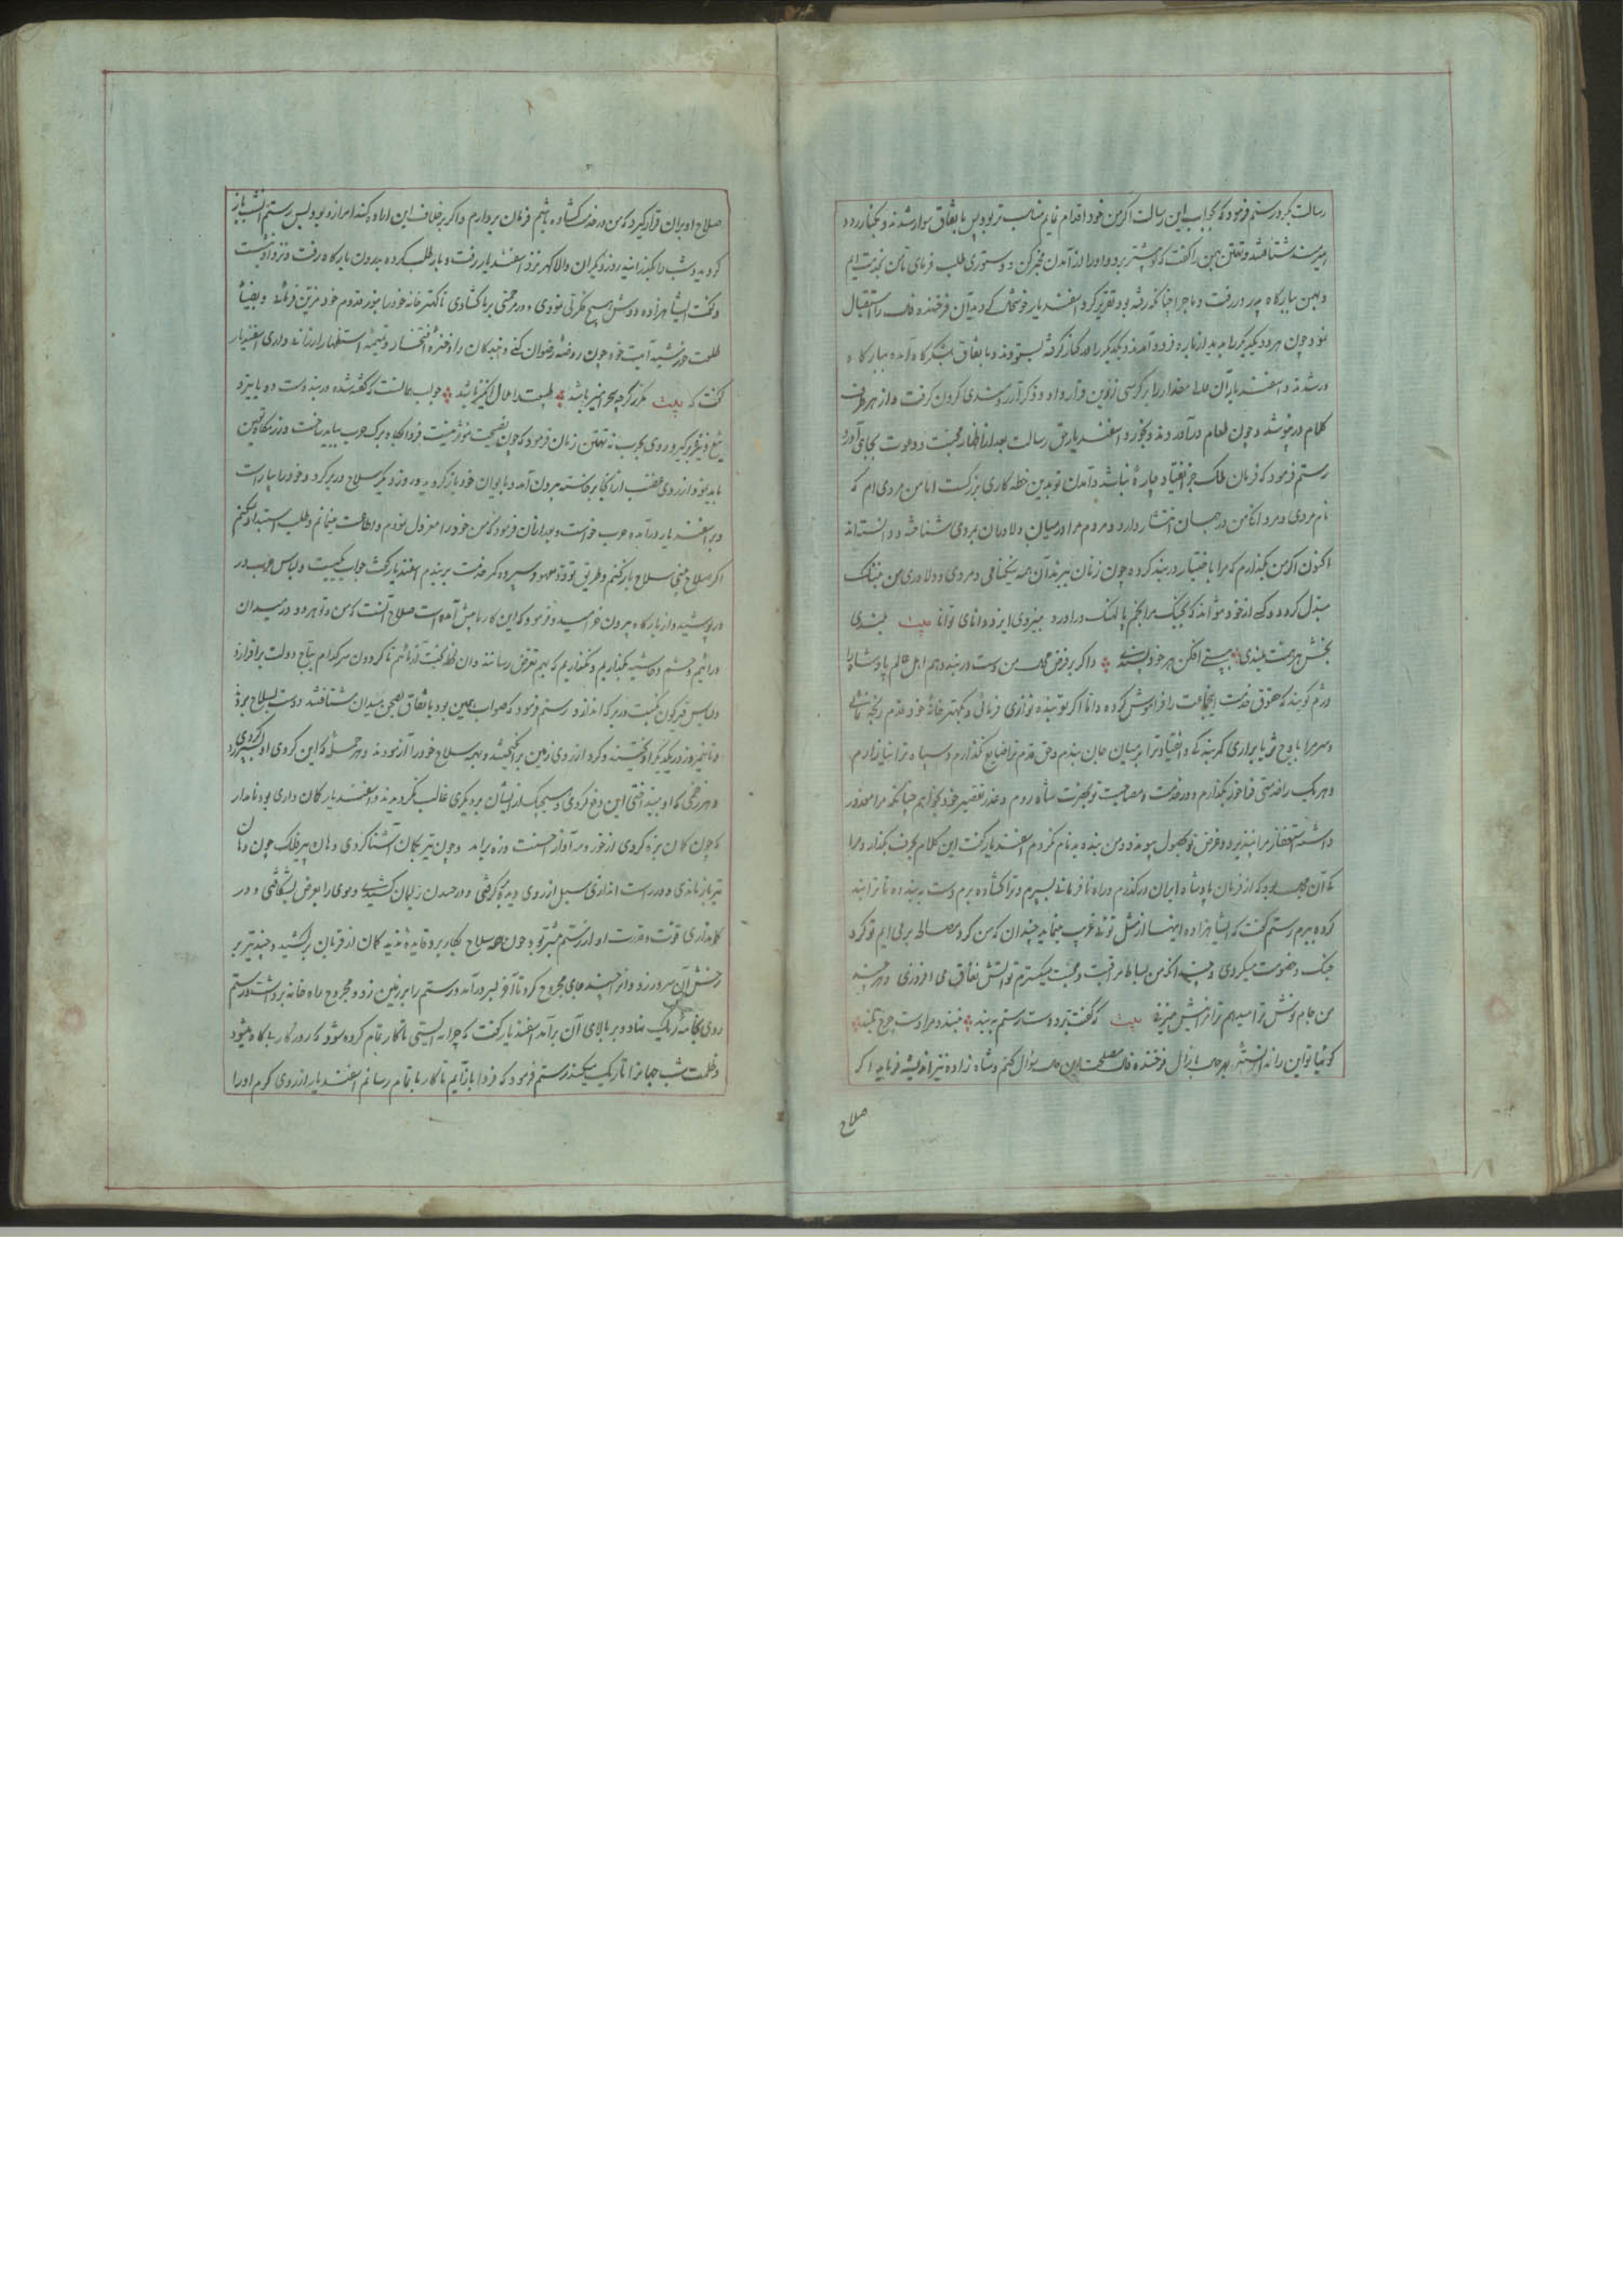 رسالت بگیرد رستم فرمود که بجواب این رسالت اگر من خود اقدام نمایم مناسب تر بود پس باتفاق سوار شدند و بکنار رود
هیرمند شتافتند و تهمتن بهمن را گفت که پیشتر برو و او را از آمدن من مخبر کن و دستوری طلب فرمای تا من بخدمت ایم
و بهمن ببارگاه پدر در رفت و ماجرا چنانکه رفته بود تقریر کرد اسفندیار فرخنده فال را استقبال
نمود چون هر دو یکدیگر را بدیدند از باره فرود آمدند و یکدیگر را در کنار گرفته و باتفاق بلشکرگاه آمده ببارگاه
در شدند و اسفندیار آن را بر کرسی زرین قرار داد و ذکر آرزومندی کردن گرفت و از هر طرف
کلام در پیوشد و چون طعام درآوردند و بخورد اسفندیار حق رسالت بعد از اظهار محبت و دعوت بجای آورد
رستم فرمود که فرمان ملک جز انقیاد چاره نباشد و آمدن تو بدین خطه کاری بزرگست اما من مردی ام که
نام مردی و مردانگی من در جهان انتشار دارد و مردم مرا در میان دلاوران بمردی شناخته و دانسته اند
اکنون اگر من بگذارم که مرا باختیار در بند کرده چون زنان ببرند آن همه نیکنامی و مردی و دلاوری من بننگ
مبدل گردد و کی از خود تواند که بجنگ مرا بخم پالهنگ درآورد بنیروی ایزد دانای توانا بیت بلندی
بخش هر همت بلندی به پستی افکن هر خود پسندی و اگر بر فرض محال من دست در بند دهم اهل عالم پادشاه را
دژم گویند که حقوق خدمت این جماعت را فراموش کرده و اما اگر تو بنده نوازی فرمائی و بکهتر خانه خود قدم رنجه نمائی
و سر مرا باوج ثریا برآری کمر بندگی و انقیاد ترا بر میان جان بندم و حق قدم ترا ضایع نگذارم و سپاه ترا نیازارم
و هر یک را خدمتی فاخر بگذارم و در خدمت و مصاحبت تو بحضرت شاه روم و عذر تقصیر خود بخواهم چنانکه مرا معذور
داشته استغفار مرا بپذیرد و غرض تو بحصول پیوندد و من بنده بدنام نگردم اسفندیار گفت این کلام بگذار و مرا
کی آن محل بود که از فرمان پادشاه ایران درگذرم و راه نافرمانی بسپرم و ترا گشاده برم دست ببند ده تا ترا بند
کرده ببرم رستم گفت که ایشاهزاده اینها از مثل توئی غریب مینماید چندان که من گرد مصالحه برمی ایم تو گرد
جنگ و خصومت میگردی و چندانکه من بساط مراقبت و محبت میگسترم تو آتش نفاق می افروزی و هر چند
من جام نوش ترا میدهم ترا نیش میزنی بیت که گفت برو دست رستم ببند نبندد مرا دست چرخ بلند
گویا تو این را ندانسته بهر حال با زال فرخنده فال مصلحت این حال سؤال کنم و شاه زاده نیز اندیشه فرماید اگر
صلاح
صلاح او بران قرار گیرد که من در خدمت گشاده باشم فرمان بردارم و اگر بر خلاف این اراده کند امر از و بود پس رستم انشب باز
گردید و شب را بگذرانید روز دیگر آن والا گهر نزد اسفندیار رفت و بار طلب کرده بدرون بارگاه رفت و نزد او نشست
و گفت ایشاهزاده دوش هیچ نکردی و در محنتی بر ما گشادی تا کهتر خانه خود را بنور قدوم خود مزین فرمائی و بضیاء
طلعت خورشید آیت خود چون روضه رضوان کنی و بندگان را ذخیره افتخار و تتمه استظهار ارزانی داری اسفندیار
گفت که بیت مکرر گرچه سحرآمیز باشد طبیعت را ملال انگیز باشد جواب همانست که گفته شده در بند دست ده یا بنزد
تیغ و تیر برگیر و روی بحرب نه تهمتن زمان فرمود که چون نصیحت مؤثر نیست فردا پگاه برگ حرب بباید ساخت و رزمگاه تعیین
باید نمود از روی غضب از انجا برخاسته بیرون آمد و بایوان خود باز گردید و روز دیگر سلاح در بر کرد و خود را بیاراست
و بر اسفندیار درآمد و حرب خواست و بعد ازان فرمود که من خود را معزول نمودم و اطاعت مینمانم و طلب استبداد نکنم
اگر صلاح بینی سلاح باز کنم و طریق تودد معهود سپرده کمر خدمت بر بندم اسفندیار گفت جواب یکیست و لباس حرب در
در پوشید و از بارگاه بیرون خرامید و فرمود که این کار ما پیش آمد است صلاح آنست که من و تو هر دو در میدان
درآئیم و حشم و حاشیه بگذاریم و نگذاریم که بهم تعرض رسانند و آن لحظه بخت آزمائیم تا گردون سر کدام بتاج دولت برافرازد
و لباس قیرگون نکبت در بر که اندازد رستم فرمود که صواب همین بود باتفاق بصحن میدان شتافتند و دست بسلاح بردند
و تا نیمروز در یکدیگر آویختند و گرد از روی زمین برانگیختند و بهر سلاح خود را آزمودند و هر حمله که این کردی او سپر کردی
و هر زخمی که او بینداختی این دفع کردی و هیچیک از ایشان بر دیگری غالب نگردیدند و اسفندیار کمان داری بود نامدار
که چون کمان بزه کردی از خود و مه آواز احسنت و زه برآمد و چون تیر بکمان آشنا کردی دهان پیر فلک چون دهان
تیر باز ماندی و در راست اندازی سبل از روی دیده برگرفتی و موی را بعرض بشکافتی و در
کمانداری قوت و قدرت او از رستم بیشتر بود چون همه سلاح بکار برد و فایده ندید کمان از قربان برکشید و چند تیر بر
رخش آن سرور زد و از چند جای مجروح کرد تا آخر بسر درآمد و رستم را بر زمین زد و مجروح راه خانه برداشت رستم
روی بخامه ریگ نهاد و بر بالای آن برآمد اسفندیار گفت که چرا نه ایستی تا کار تمام کرده شود که روزگار بیگاه میشود
و ظلمت شب جهانرا تاریک میکند رستم فرمود که فردا بازآیم تا کار باتمام رسانم اسفندیار از روی کرم او را